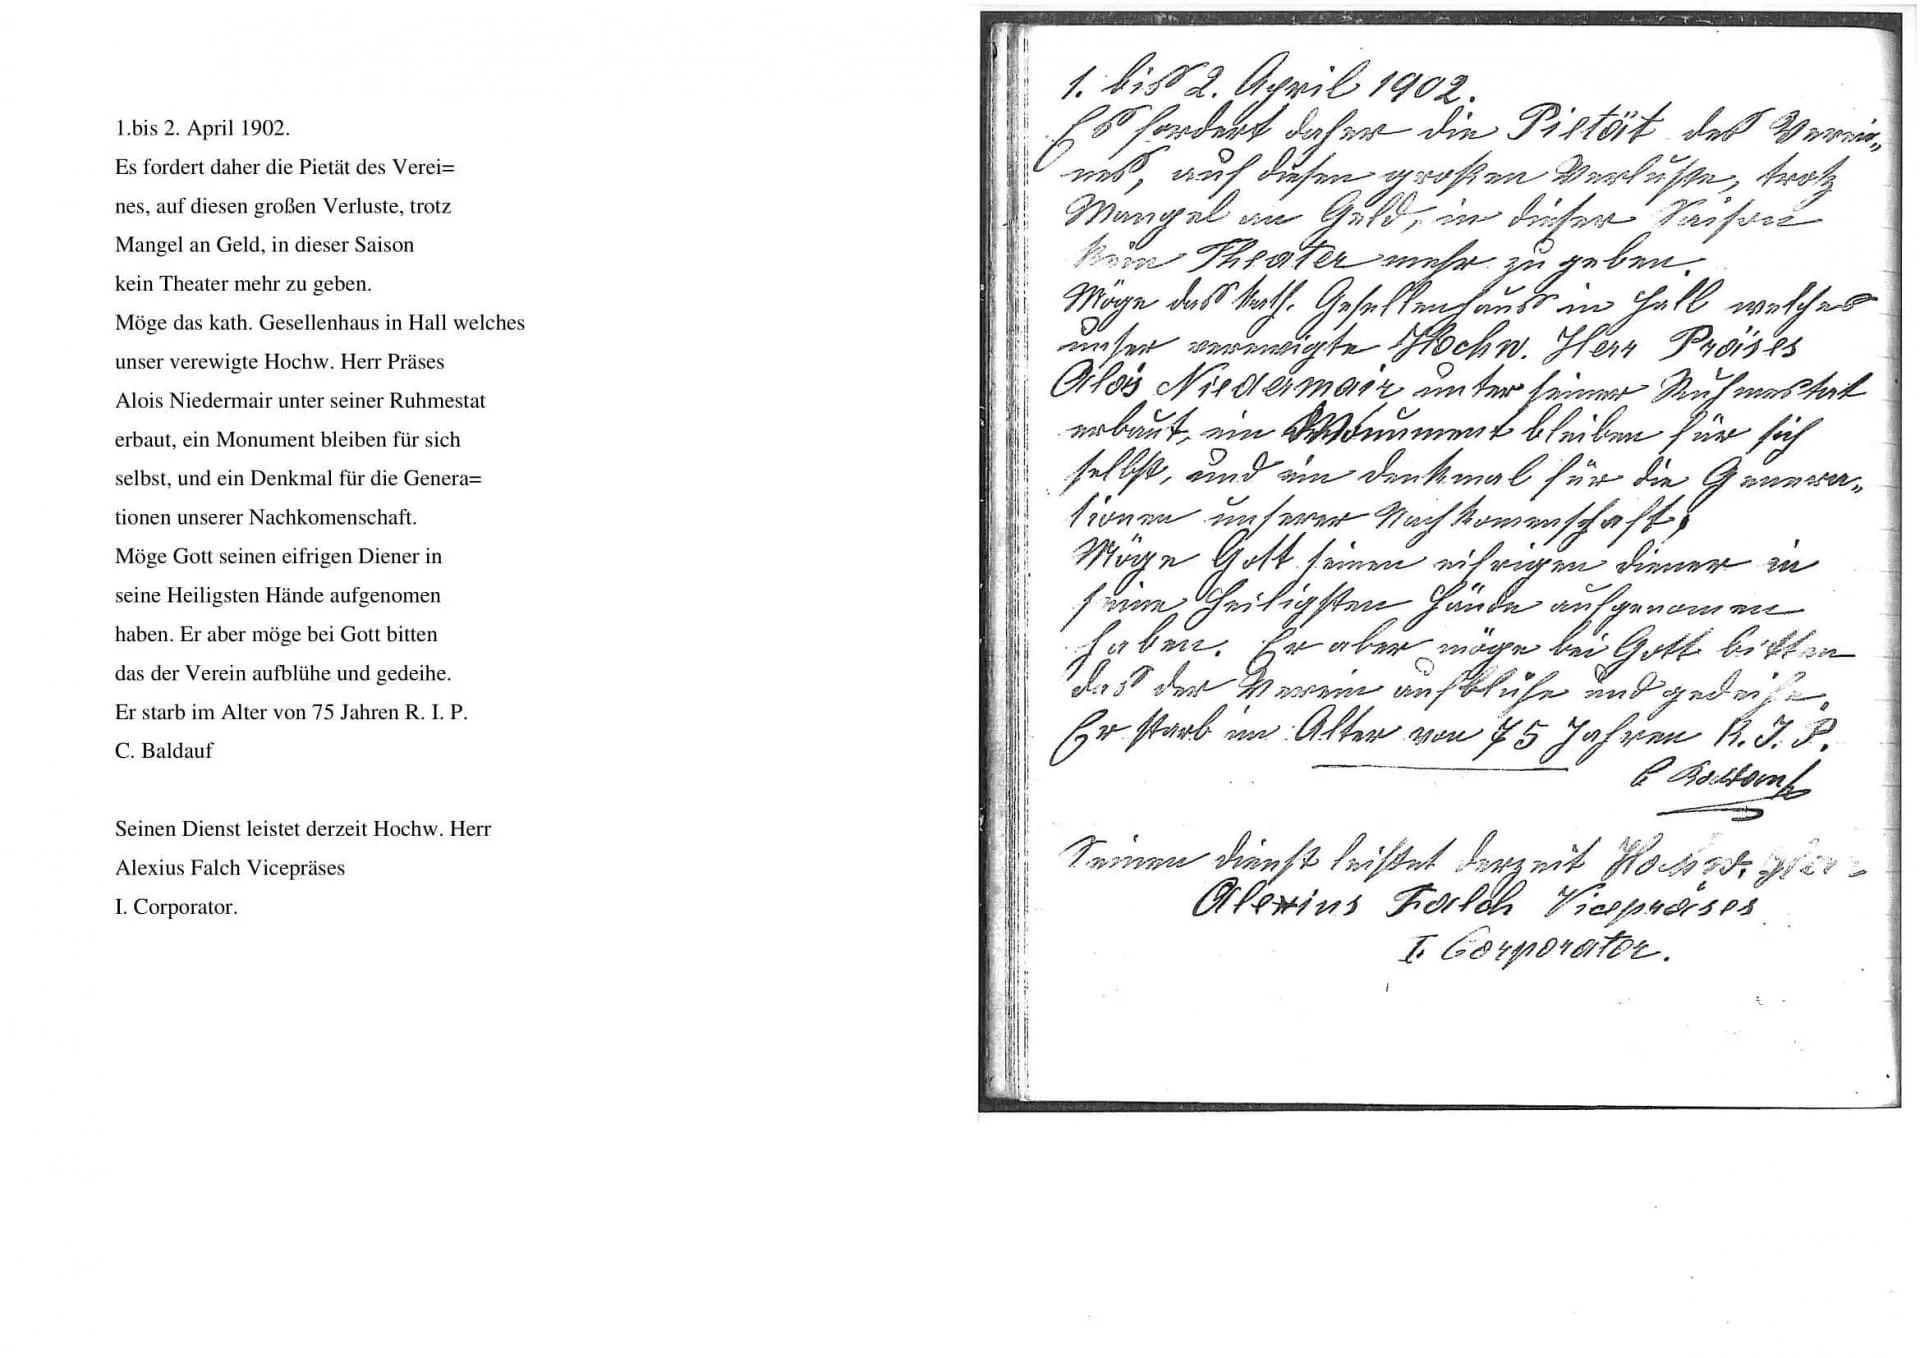 1.bis 2. April 1902.
Es fordert daher die Pietät des Verei=
nes, auf diesen großen Verluste, trotz
Mangel an Geld, in dieser Saison
kein Theater mehr zu geben.
Möge das kath. Gesellenhaus in Hall welches
unser verewigte Hochw. Herr Präses
Alois Niedermair unter seiner Ruhmestat
erbaut, ein Monument bleiben für sich
selbst, und ein Denkmal für die Genera=
tionen unserer Nachkomenschaft.
Möge Gott seinen eifrigen Diener in
seine Heiligsten Hände aufgenomen
haben. Er aber möge bei Gott bitten
das der Verein aufblühe und gedeihe.
Er starb im Alter von 75 Jahren R. I. P.
C. Baldauf
Seinen Dienst leistet derzeit Hochw. Herr
Alexius Falch Vicepräses
I. Corporator.
1. bis 2. April 1902.
Es fordert daher die Pietät des Verei„
nes, auf diesen großen Verluste, trotz
Mangel an Geld, in dieser Saison
kein Theater mehr zu geben.
Möge das kath. Gesellenhaus in Hall welches
unser verewigte Hochw. Herr Präses
Alois Niedermair unter seiner Ruhmestat
erbaut, ein Monument bleiben für sich
selbst, und ein Denkmal für die Genera„
tionen unserer Nachkomenschaft.
Möge Gott seinen eifrigen Diener in
seine Heiligsten Hände aufgenomen
haben. Er aber möge bei Gott bitten
das der Verein aufblühe und gedeihe.
Er starb im Alter von 75 Jahren R. I. P.
C Baldauf
Seinen Dienst leistet derzeit Hochw. Herr
Alexius Falch Vicepräses
I. Corporator.